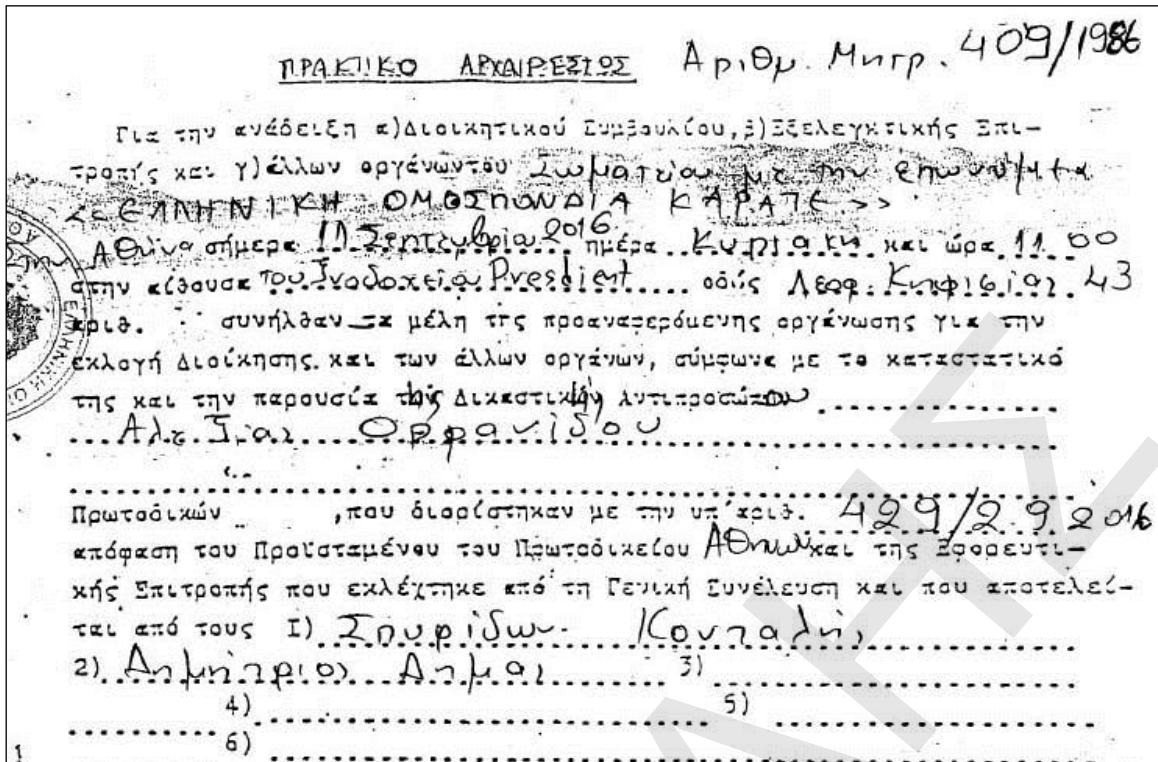 ΠΡΑΚΤΙΚΟ ΑΡΧΑΙΡΕΣΙΩΣ Αριθμ. Μητρ. 409/1986
Για την ανάδειξη α)Διοικητικού Συμβουλίου,β)Εξελεγκτικής Επι-
τροπής και γ)άλλων οργάνων του Σωματείου με την επωνυμία
<<ΕΛΛΗΝΙΚΗ ΟΜΟΣΠΟΝΔΙΑ ΚΑΡΑΤΕ>>
Στην Αθήνα σήμερα 11 Σεπτεμβρίου 2016 ημέρα Κυριακή και ώρα 11 00
στην αίθουσα του Ξενοδοχείου President οδός Λεωφ. Κηφισίας 43
αριθ. συνήλθαν τα μέλη της προαναφερόμενης οργάνωσης για την
εκλογή Διοίκησης και των άλλων οργάνων, σύμφωνα με το καταστατικό
της και την παρουσία της Δικαστικής Αντιπροσώπου
Ορφανίδου
Πρωτοδικών ,που διορίστηκαν με την υπ'αριθ. 429/2 9 2016
απόφαση του Προϊσταμένου του Πρωτοδικείου Αθηνών και της Εφορευτι-
κής Επιτροπής που εκλέχτηκε από τη Γενική Συνέλευση και που αποτελεί-
ται από τους 1) Σπυρίδων Κονταλής
2) Δημήτριος Δημας 3)
4) 5)
6)